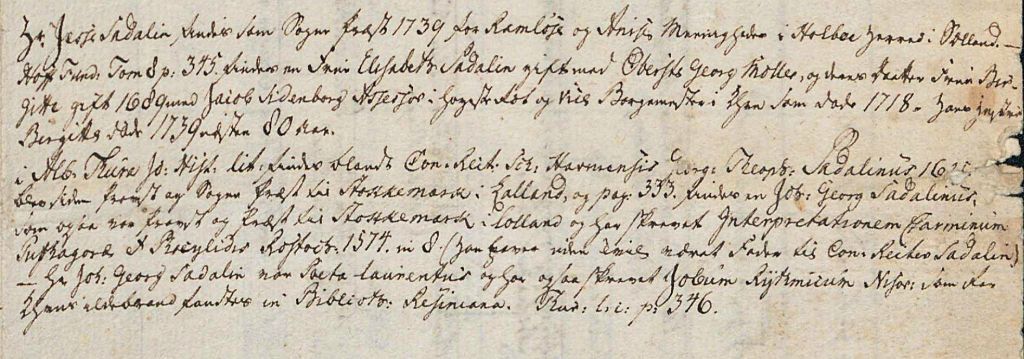 Hr. Jesse Sadalin findes som Sogne Præst 1739 for Ramløse og Anisse Menigheder i Holboe Herred i Sælland. —
Hoff Fund: Tom 8 p: 345. findes en Frue Elisabeth Sadalin gift med Oberst Georg Møller, og deres Datter Frue Bir-
gitte gift 1689 med Jacob Sidenborg Assessor i Høyeste Ret og Vice Borgemester i Khvn som døde 1718. Hans Hustrue
Birgitte døde 1739 næsten 80 Aar.
i Alb: Thura Jo: Hist: lit: findes blandt Con: Rect: Sch: Havniensis Georg: Theoph: Sadalinus 162
blev siden Provst og Sogne Præst til Stokkemark i Lalland, og pag. 333. findes en Joh: Georg Sadalinus,
som ogsaa var Provst og Præst til Stokkemark i Lolland og har skrevet Interpretationem Carminum
Puthagoræ & Phocylidis Rostoch: 1574. in 8. (han haver uden tvivl været Fader til Con: Rector Sadalin)
— Hr Joh: Georg Sadalin var Poeta-Laurentus og har ogsaa skrevet Jobum Rÿthmicum som før
Khvns ildebrand fandtes in Biblioth: Reseniana. Thur: l: c: p: 346.